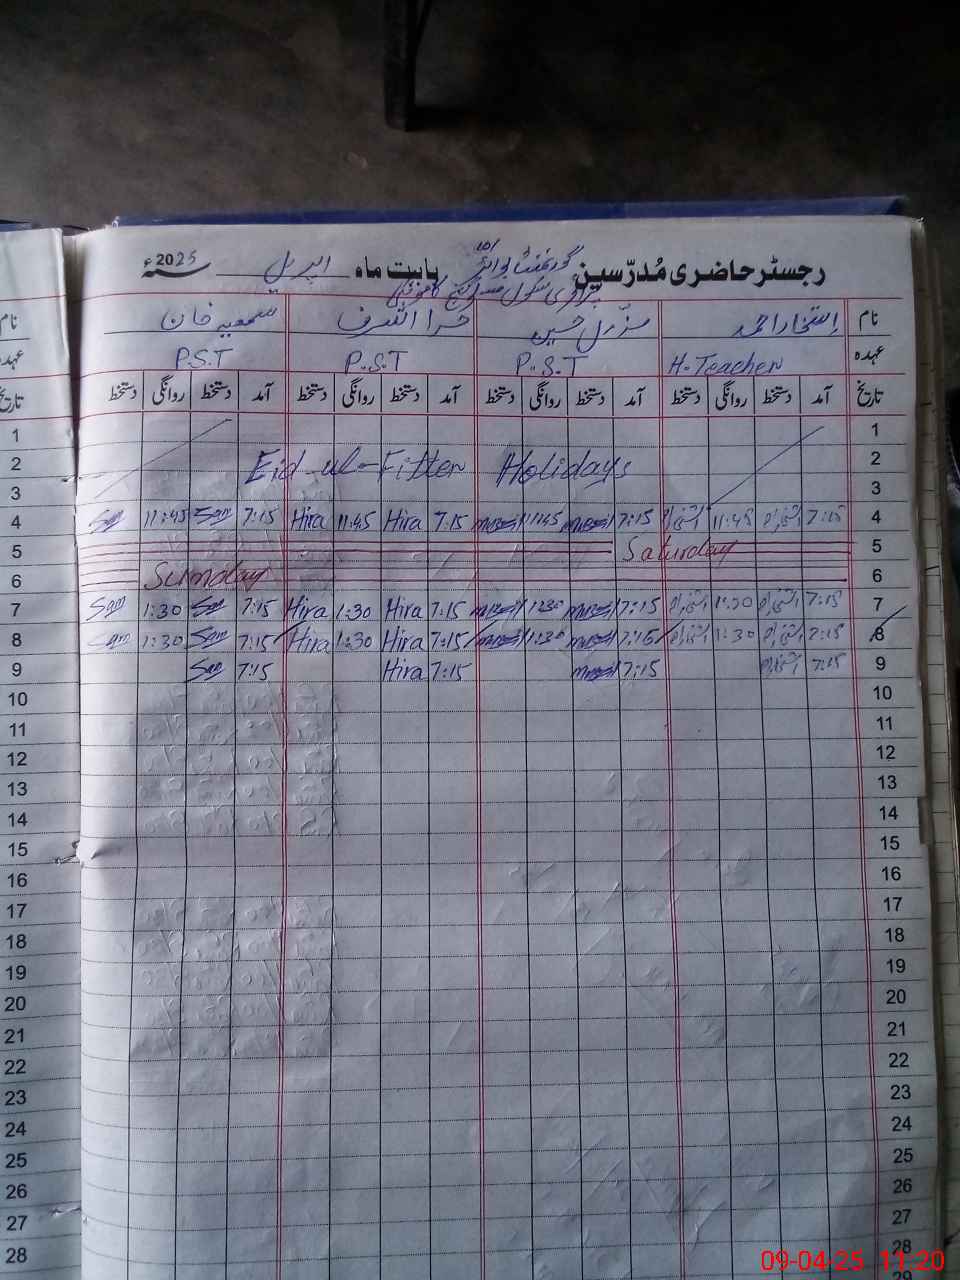 رجسٹر حاضری مُدرّسین گورنمنٹ بوائز بابت ماہ اپریل 2025ء
پرائمری سکول
نام افتخار احمد مزمل حسین حرا اشرف سمعیہ خان نام
عہدہ H. Teacher P.S.T P.S.T P.S.T عہدہ
تاریخ آمد دستخط روانگی دستخط آمد دستخط روانگی دستخط آمد دستخط روانگی دستخط آمد دستخط روانگی دستخط تاریخ
1 1
2 Eid-ul-Fitter Holidays 2
3 3
4 Sam 11:45 Sam 7:15 Hira 11:45 Hira 7:15 11:45 7:15 11:45 7:15 4
5 Saturday 5
6 Sunday 6
7 Sam 1:30 Sam 7:15 Hira 1:30 Hira 7:15 1:30 7:15 1:30 7:15 7
8 Sam 1:30 Sam 7:15 Hira 1:30 Hira 7:15 1:30 7:15 1:30 7:15 8
9 Sam 7:15 Hira 7:15 7:15 7:15 9
10 10
11 11
12 12
13 13
14 14
15 15
16 16
17 17
18 18
19 19
20 20
21 21
22 22
23 23
24 24
25 25
26 26
27 27
28 28
29
09-04-25 11:20